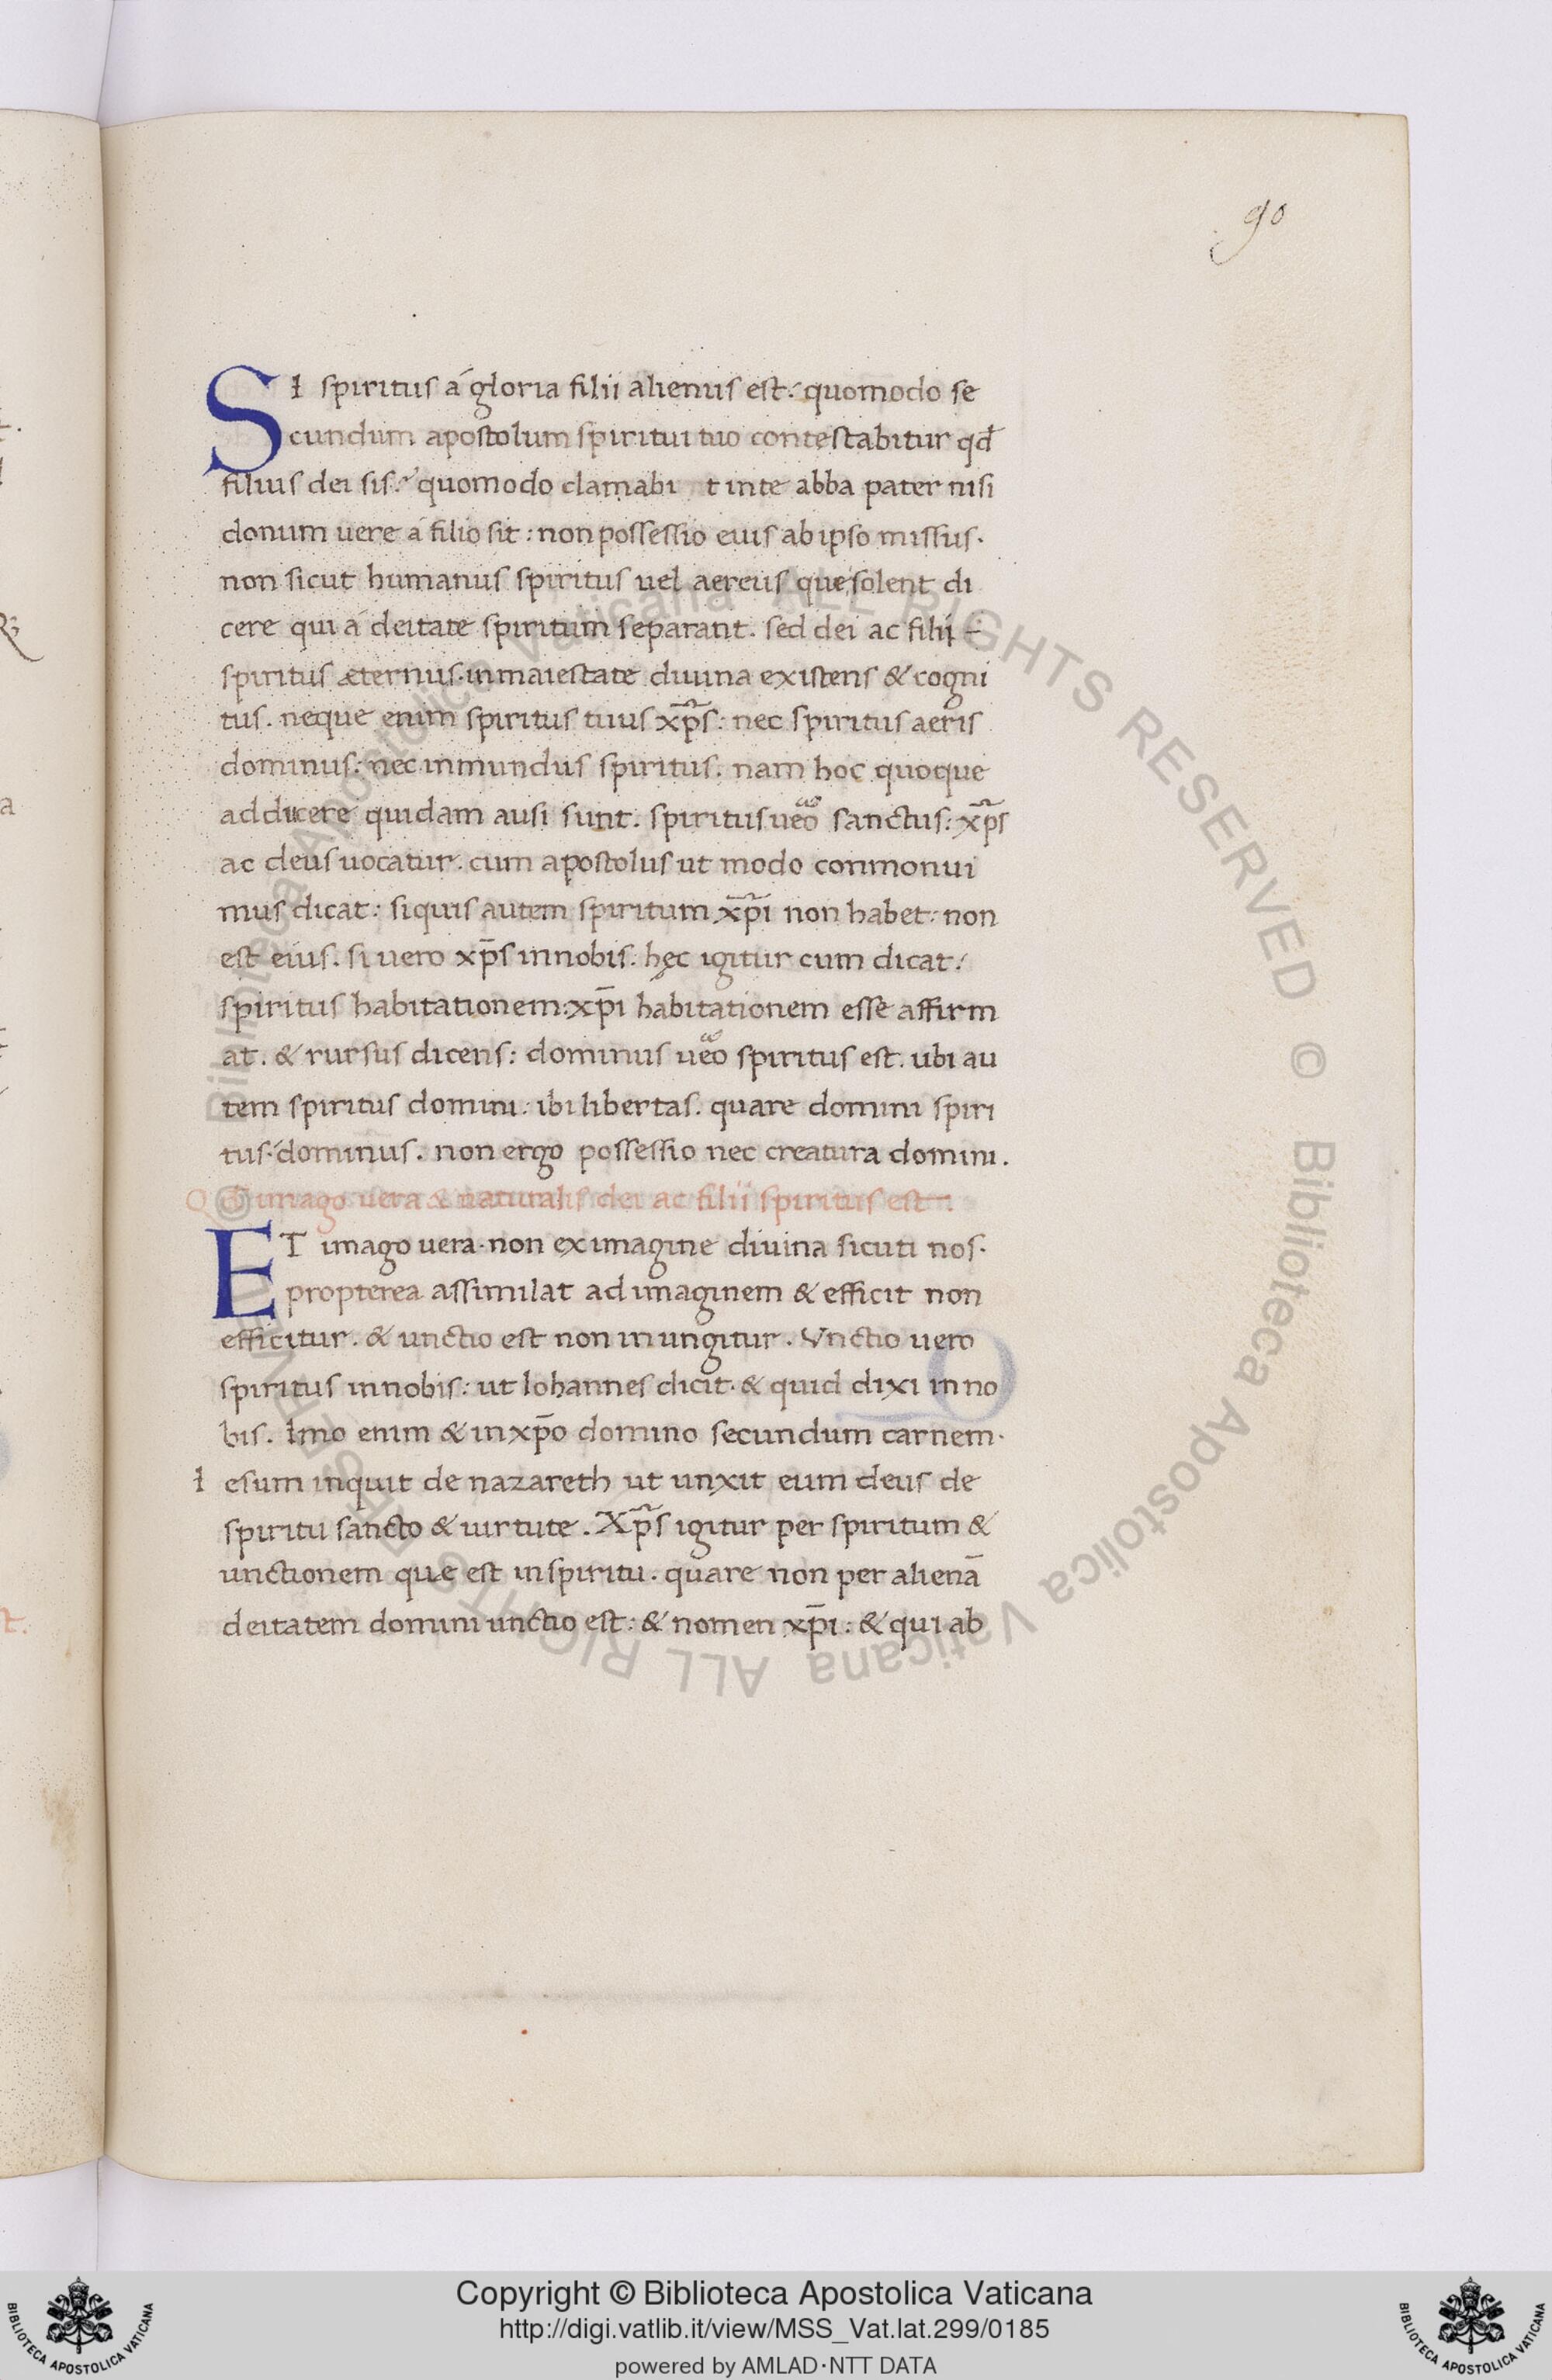 90
SI spiritus á gloria filii alienus est: quomodo se
cundum apostolum spiritui tuo contestabitur qđ
filius dei sis? quomodo clamabi t inte abba pater nisi
donum uere á filio sit: non possessio euis ab ipso missus.
non sicut humanus spiritus uel aereus que solent di
cere qui á deitate spiritum separant. sed dei ac filii –
spiritus æternus. in maiestate diuina existens & cogni
tus. neque enim spiritus tuus xp̄s: nec spiritus aeris
dominus: nec inmundus spiritus. nam hoc quoque
adducere quidam ausi sunt. spiritus ueo sanctus: xp̄s
ac deus uocatur. cum apostolus ut modo conmonui
mus dicat: siquis autem spiritum xp̄i non habet: non
est eius. si uero xp̄s innobis. hęc igitur cum dicat:
spiritus habitationem: xp̄i habitationem esse affirm
at. & rursus dicens: dominus ueo spiritus est. ubi au
tem spiritus domini: ibi libertas. quare domini spiri
tus: dominus. non ergo possessio nec creatura domini.
Qđ imago uera & naturalis dei ac filii spiritus est
ET imago uera. non ex imagine diuina sicuti nos.
propterea assimilat ad imaginem & efficit non
efficitur. & unctio est non inungitur. Vnctio uero
spiritus innobis: ut Iohannes dicit. & quid dixi inno
bis. Imo enim & inxp̄o domino secundum carnem.
I esum inquit de nazareth ut unxit eum deus de
spiritu sancto & uirtute. Xp̄s igitur per spiritum &
unctionem que est inspiritu. quare non per alienā
deitatem domini unctio est: & nomen xp̄i: & qui ab
© Biblioteca Apostolica Vaticana ALL RIGHTS RESERVED
© Biblioteca Apostolica Vaticana ALL RIGHTS RESERVED
Copyright © Biblioteca Apostolica Vaticana
http://digi.vatlib.it/view/MSS_Vat.lat.299/0185
powered by AMLAD·NTT DATA
BIBLIOTECA APOSTOLICA VATICANA
BIBLIOTECA APOSTOLICA VATICANA